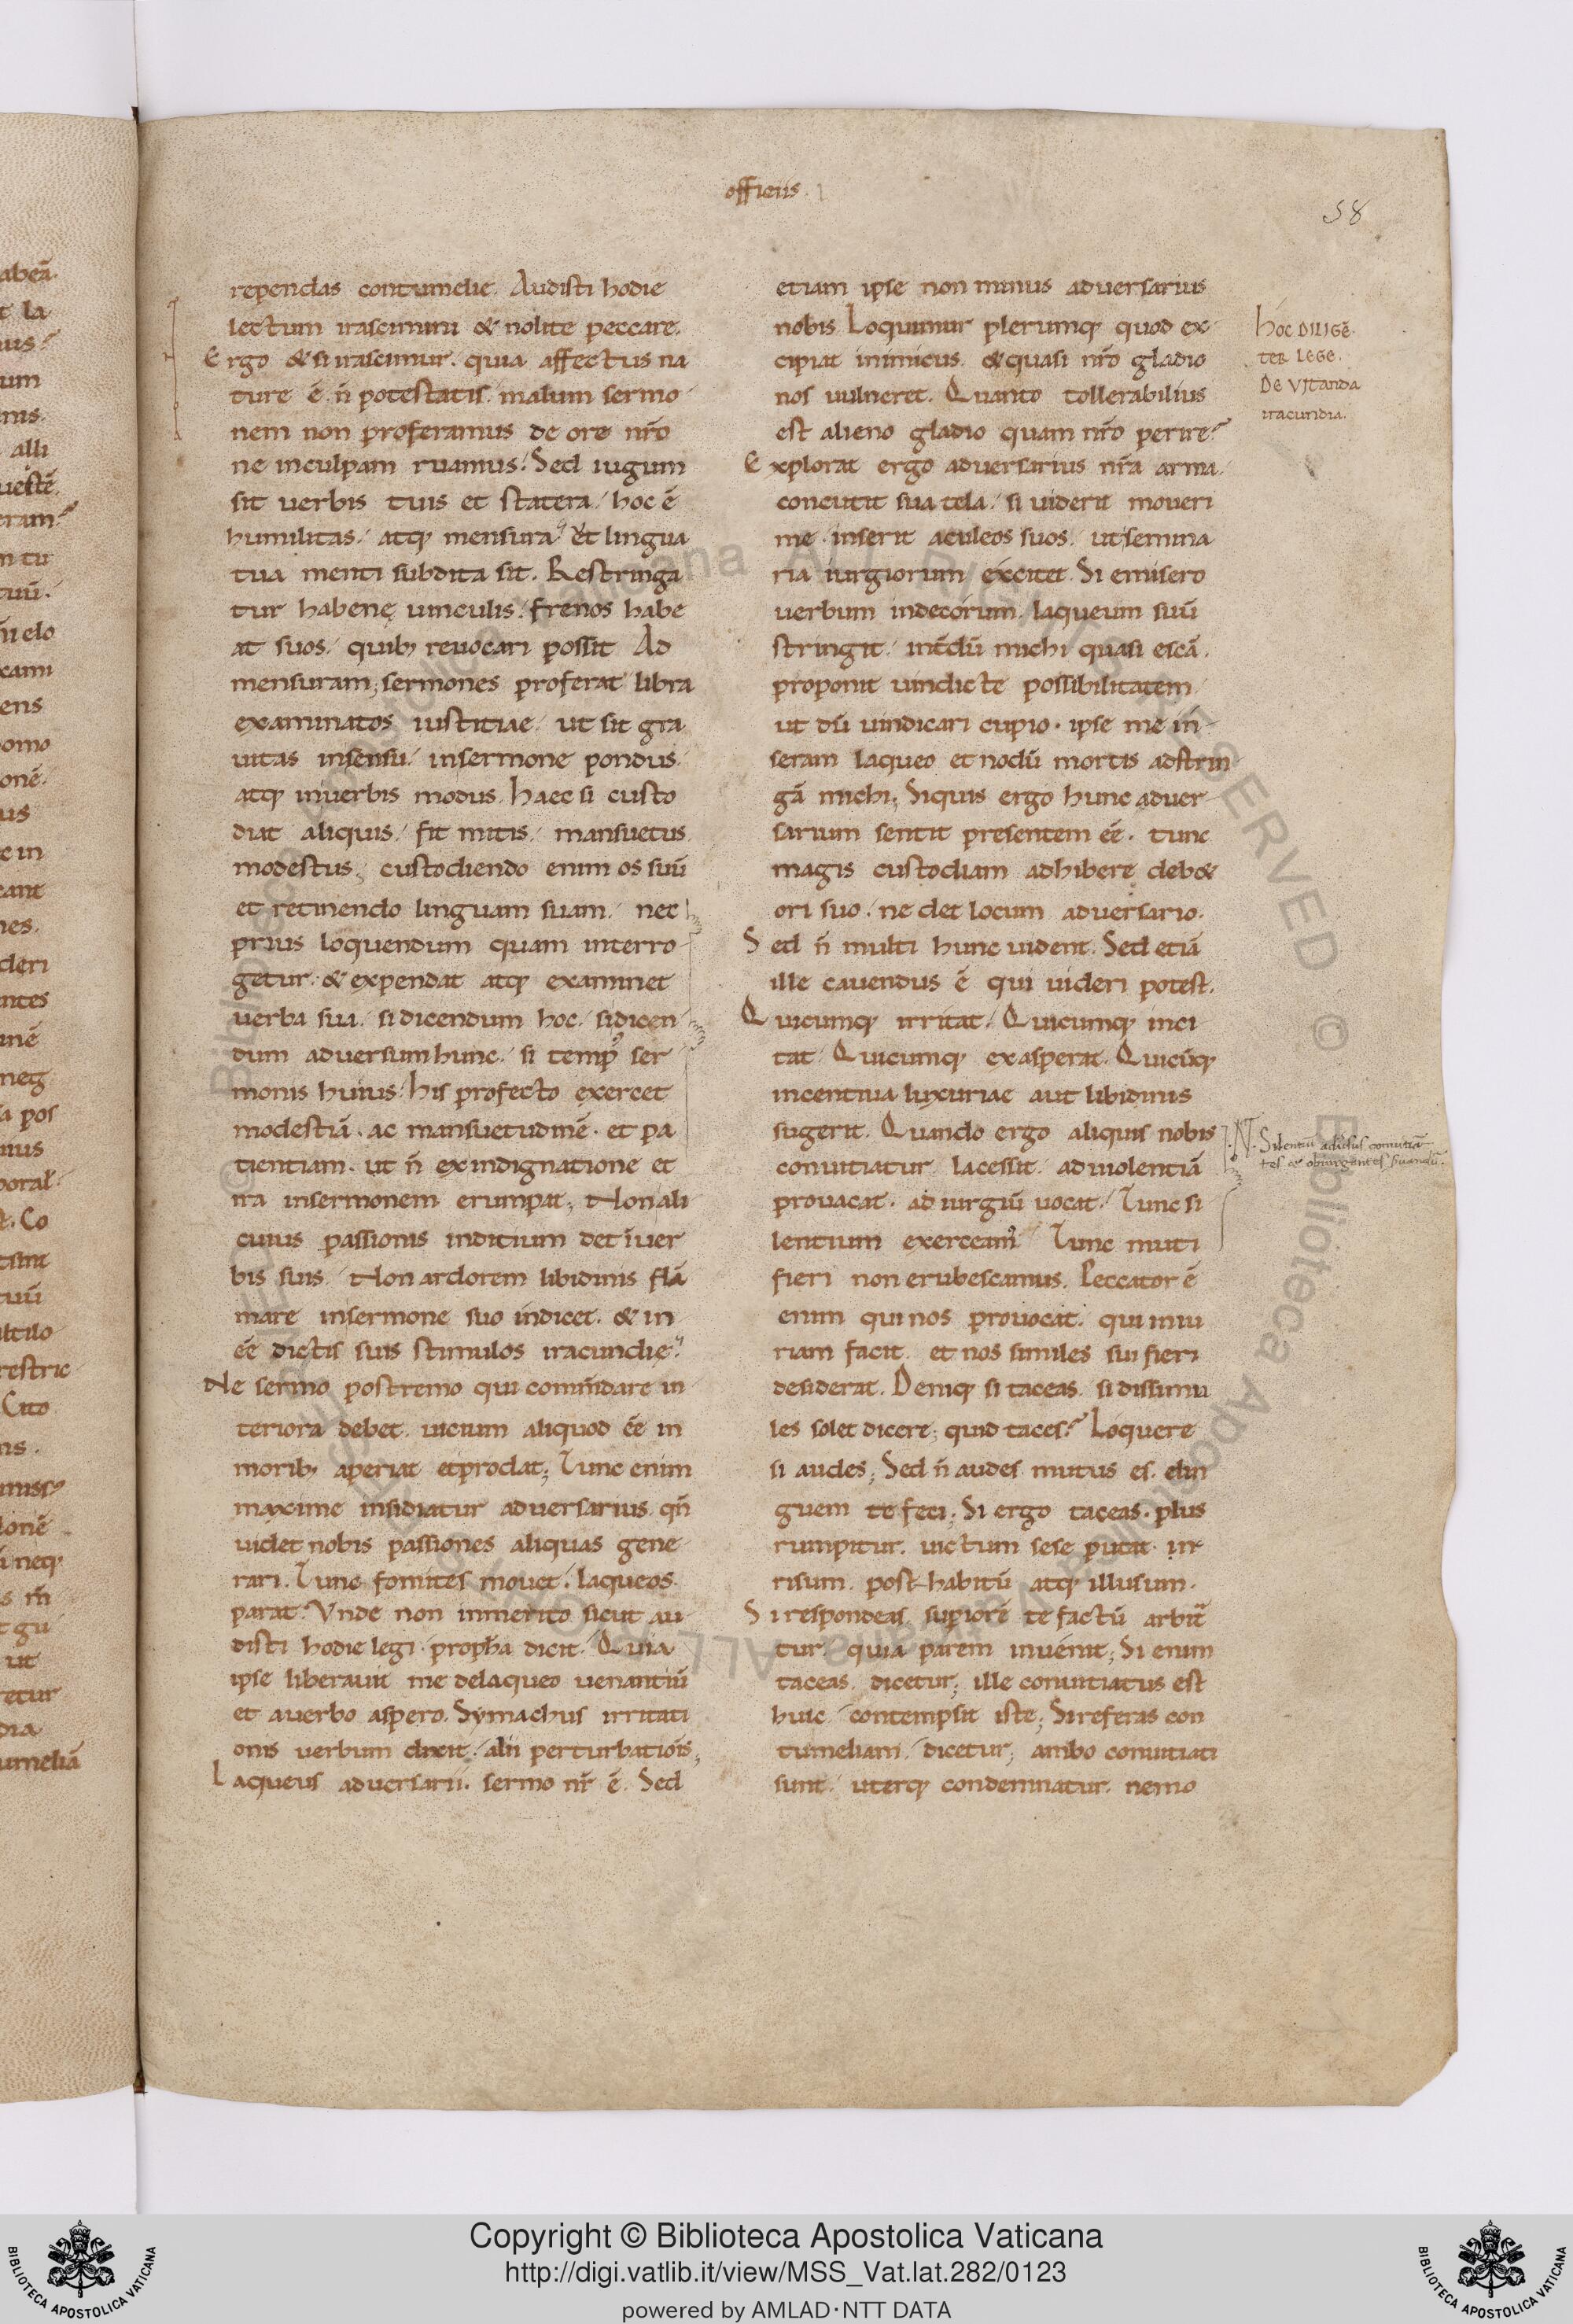 officiis.
58
rependas contumelie. Audisti hodie
lectum irascimini & nolite peccare.
Ergo & si irascimur. quia affectus na
ture ē n̄ potestatis. malum sermo
nem non proferamus de ore nr̄o
ne inculpam ruamus. Sed iugum
sit verbis tuis et statera. hoc ē
humilitas. atq; mensura. et lingua
tua menti subdita sit. Restringa
tur habenę vinculis. frenos habe
at suos. quib; revocari possit Ad
mensuram; sermones proferat libra
examinatos iustitiae. ut sit gra
vitas insensu. insermone pondus.
atq; inverbis modus. haec si custo
diat aliquis. fit mitis. mansuetus.
modestus; custodiendo enim os suū
et retinendo linguam suam. nec
prius loquendum quam interro
getur. & expendat atq; examinet
verba sua. si dicendum hoc. si dicen
dum adversum hunc. si temp᾽ ser
monis huius. his profecto exercet
modestiā. ac mansuetudinē. et pa
tientiam. ut n̄ exindignatione et
ira insermonem erumpat; Non ali
cuius passionis inditium det īver
bis suis. Non ardorem libidinis flā
mare insermone suo indicet. & in
ēē dictis suis stimulos iracundię.
Ne sermo postremo qui com̄dare in
teriora debet. vicium aliquod ēē in
morib; aperiat etprodat; Tunc enim
maxime insidiatur adversarius. qn̄
videt nobis passiones aliquas gene
rari. Tunc fomites movet. laqueos.
parat. Vnde non inmerito sicut au
disti hodie legi. propha dicit. Quia
ipse liberavit me delaqueo venantiū
et averbo aspero. Symachus irritati
onis verbum dixit. alii perturbatiōis;
Laqueus adversarii. sermo nr̄ ē. Sed
etiam ipse non minus adversarius
nobis. Loquimur plerumq; quod ex
cipiat inimicus. & quasi nr̄o gladio
nos vulneret. Quanto tollerabilius
est alieno gladio quam nr̄o perire?
Explorat ergo adversarius nr̄a arma.
concutit sua tela. si viderit moveri
me. inserit aculeos suos. utsemina
ria iurgiorum excitet. Si emisero
verbum indecorum. laqueum suū
stringit. int̄dū michi quasi escā.
proponit vindicte possibilitatem.
ut dū vindicari cupio. ipse me in
seram laqueo et nodū mortis adstrin
gā michi; Siquis ergo hunc adver
sarium sentit presentem ēē. tunc
magis custodiam adhibere deb&
ori suo. ne det locum adversario.
Sed n̄ multi hunc vident. Sed etiā
ille cavendus ē qui videri potest.
Quicumq; irritat. Quicumq; inci
tat. Quicumq; exasperat. Quicūq;
incentiva luxuriae aut libidinis
sugerit. Quando ergo aliquis nobis
convitiatur. lacessit. ad violentiā
provacat. ad iurgiū vocat. Tunc si
lentium exerceam᾽ Tunc muti
fieri non erubescamus. Peccator ē
enim qui nos provocat. qui iniu
riam facit. et nos similes sui fieri
desiderat. Deniq; si taceas. si dissimu
les solet dicere; quid taces? Loquere
si audes; Sed n̄ audes. mutus es. elin
guem te feci; Si ergo taceas. plus
rumpitur. victum sese putat. ir
risum. post-habitū atq; illusum.
Si respondeas. superiorē te factū arbit̄
tur. quia parem invenit; Si enim
taceas. dicetur; ille convitiatus est
huic. contempsit iste; Si referas con
tumeliam. dicetur; ambo convitiati
sunt. uterq; condemnatur. nemo
hoc DILIGĒ
TER LEGE.
De VITANDA
iracundia.
N. Silentiū advsus convitiā
tes & obiurgentes sūandū.
Copyright © Biblioteca Apostolica Vaticana
http://digi.vatlib.it/view/MSS_Vat.lat.282/0123
powered by AMLAD·NTT DATA
BIBLIOTECA APOSTOLICA VATICANA
BIBLIOTECA APOSTOLICA VATICANA